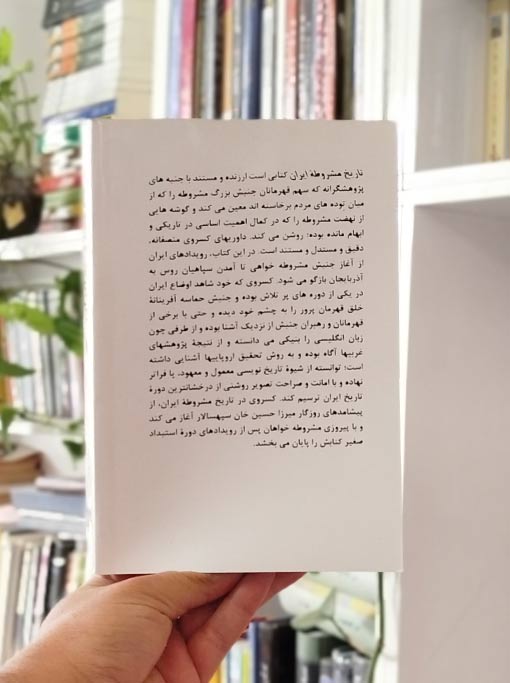 تاریخ مشروطهٔ ایران کتابی است ارزنده و مستند با جنبه های
پژوهشگرانه که سهم قهرمانان جنبش بزرگ مشروطه را که از
میان توده های مردم برخاسته اند معین می کند و گوشه هایی
از نهضت مشروطه را که در کمال اهمیت اساسی در تاریکی و
ابهام مانده بوده؛ روشن می کند. داوریهای کسروی منصفانه،
دقیق و مستدل و مستند است. در این کتاب، رویدادهای ایران
از آغاز جنبش مشروطه خواهی تا آمدن سپاهیان روس به
آذربایجان بازگو می شود. کسروی که خود شاهد اوضاع ایران
در یکی از دوره های پر تلاش بوده و جنبش حماسه آفرینانهٔ
خلق قهرمان پرور را به چشم خود دیده و حتی با برخی از
قهرمانان و رهبران جنبش از نزدیک آشنا بوده و از طرفی چون
زبان انگلیسی را بنیکی می دانسته و از نتیجهٔ پژوهشهای
غربیها آگاه بوده و به روش تحقیق اروپاییها آشنایی داشته
است؛ توانسته از شیوهٔ تاریخ نویسی معمول و معهود، پا فراتر
نهاده و با امانت و صراحت تصویر روشنی از درخشانترین دورهٔ
تاریخ ایران ترسیم کند. کسروی در تاریخ مشروطهٔ ایران، از
پیشامدهای روزگار میرزا حسین خان سپهسالار آغاز می کند
و با پیروزی مشروطه خواهان پس از رویدادهای دورهٔ استبداد
صغیر کتابش را پایان می بخشد.